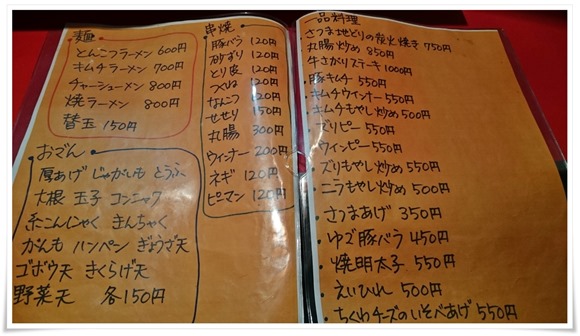 麺
とんこつラーメン 600円
キムチラーメン 700円
チャーシューメン 800円
焼ラーメン 800円
替玉 150円
おでん
厚あげ じゃがいも とうふ
大根 玉子 コンニャク
糸こんにゃく きんちゃく
がんも ハンペン ぎょうざ天
ゴボウ天 きくらげ天
野菜天 各150円
串焼
豚バラ 120円
砂ずり 120円
とり皮 120円
つくね 120円
なんこつ 120円
せせり 150円
丸腸 300円
ウィンナー 200円
ネギ 120円
ピーマン 120円
一品料理
さつま地どりの炭火焼き 750円
丸腸炒め 850円
牛さがりステーキ 1000円
豚キムチ 550円
・キムチウィンナー 550円
・キムチもやし炒め 500円
・ズリピー 550円
・ウィンピー 550円
・ズリもやし炒め 550円
・ニラもやし炒め 500円
・さつまあげ 350円
・ゆで豚バラ 450円
・焼明太子 550円
・えいひれ 500円
・ちくわチーズのいそべあげ 550円